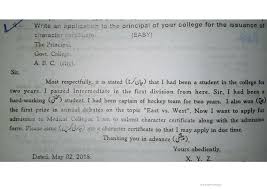 Write an application to the principal of your college for the issuance of
character certificate. (EASY)
The Principal,
Govt. College,
A. B. C. (city).
Sir,
Most respectfully, it is stated that I had been a student in the college for
two years. I passed Intermediate in the first division from here. Sir, I had been a
hard-working student. I had been captain of hockey team for two years. I also won
the first prize in annual debates on the topic "East vs. West". Now I want to apply for
admission to Medical College. I am to submit character certificate along with the admission
form. Please issue me a character certificate so that I may apply in due time.
Thanking you in advance
Yours obediently,
Dated. May 02, 2018. X. Y. Z.